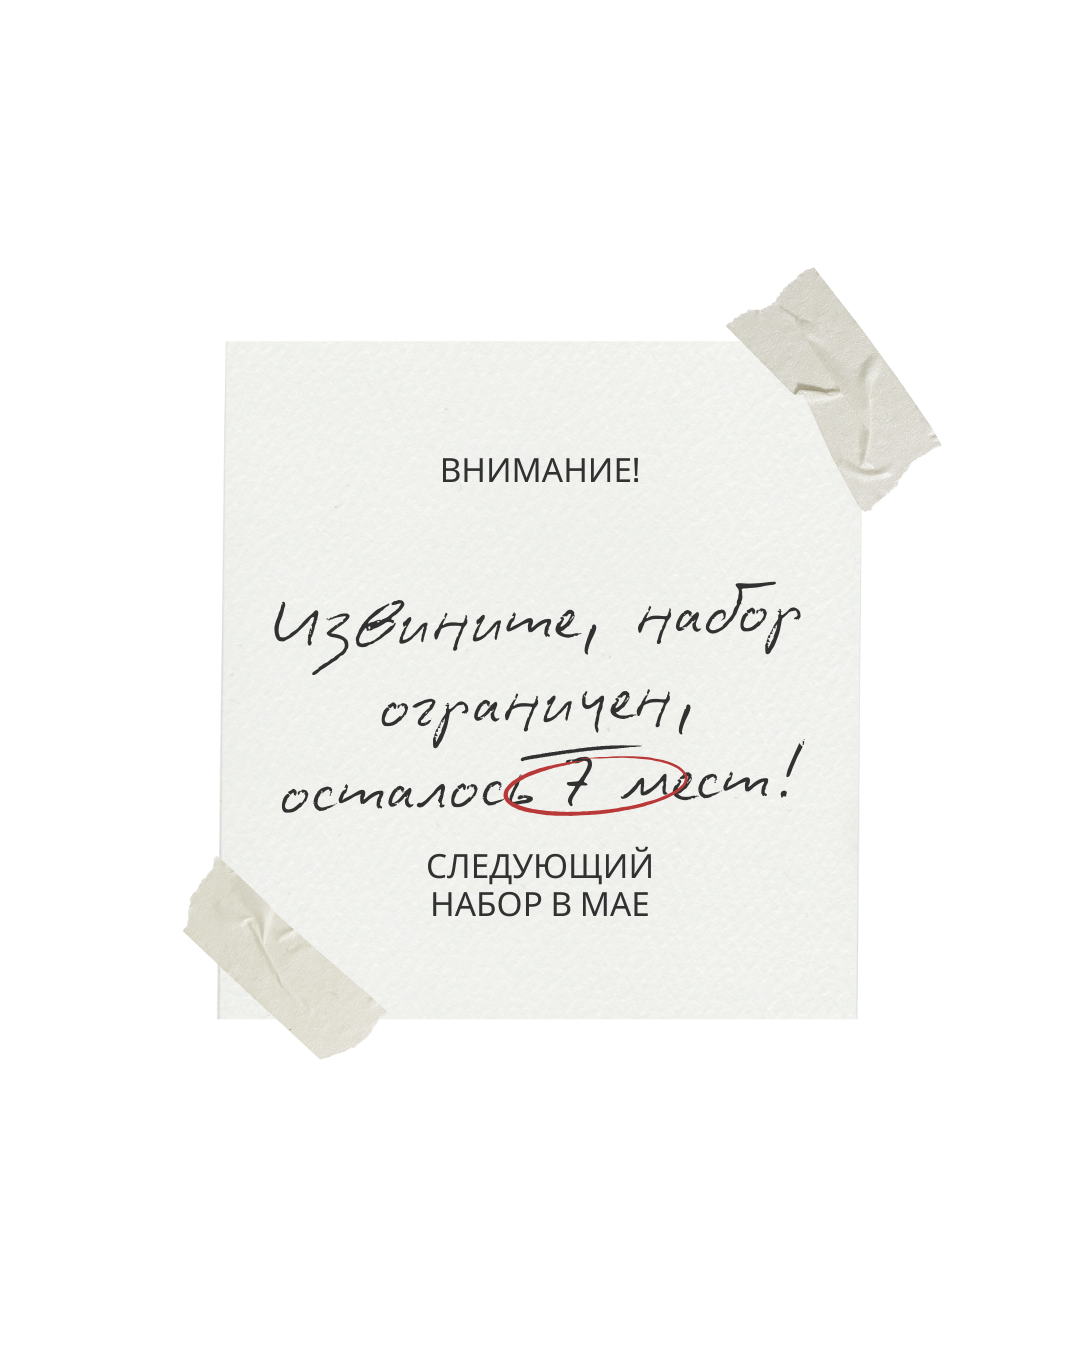 ВНИМАНИЕ!
Извините, набор
ограничен,
осталось 7 мест!
СЛЕДУЮЩИЙ
НАБОР В МАЕ